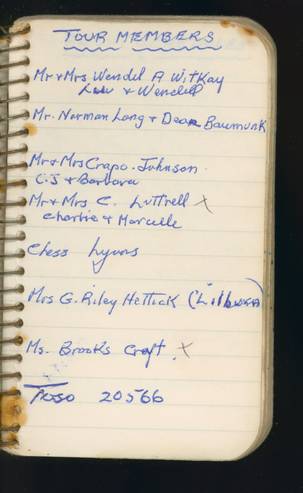 TOUR MEMBERS
Mr & Mrs Wendel A Witkay
Lou & Wendell
Mr. Norman Long & Dean Baumunk
Mr & Mrs Crapo-Johnson.
C.J & Barbara
Mr & Mrs C. Luttrell X
Charlie & Marcelle
Chess Lyons
Mrs G. Riley Hettick (Lilburn)
Ms. Brooks Croft. X
20566